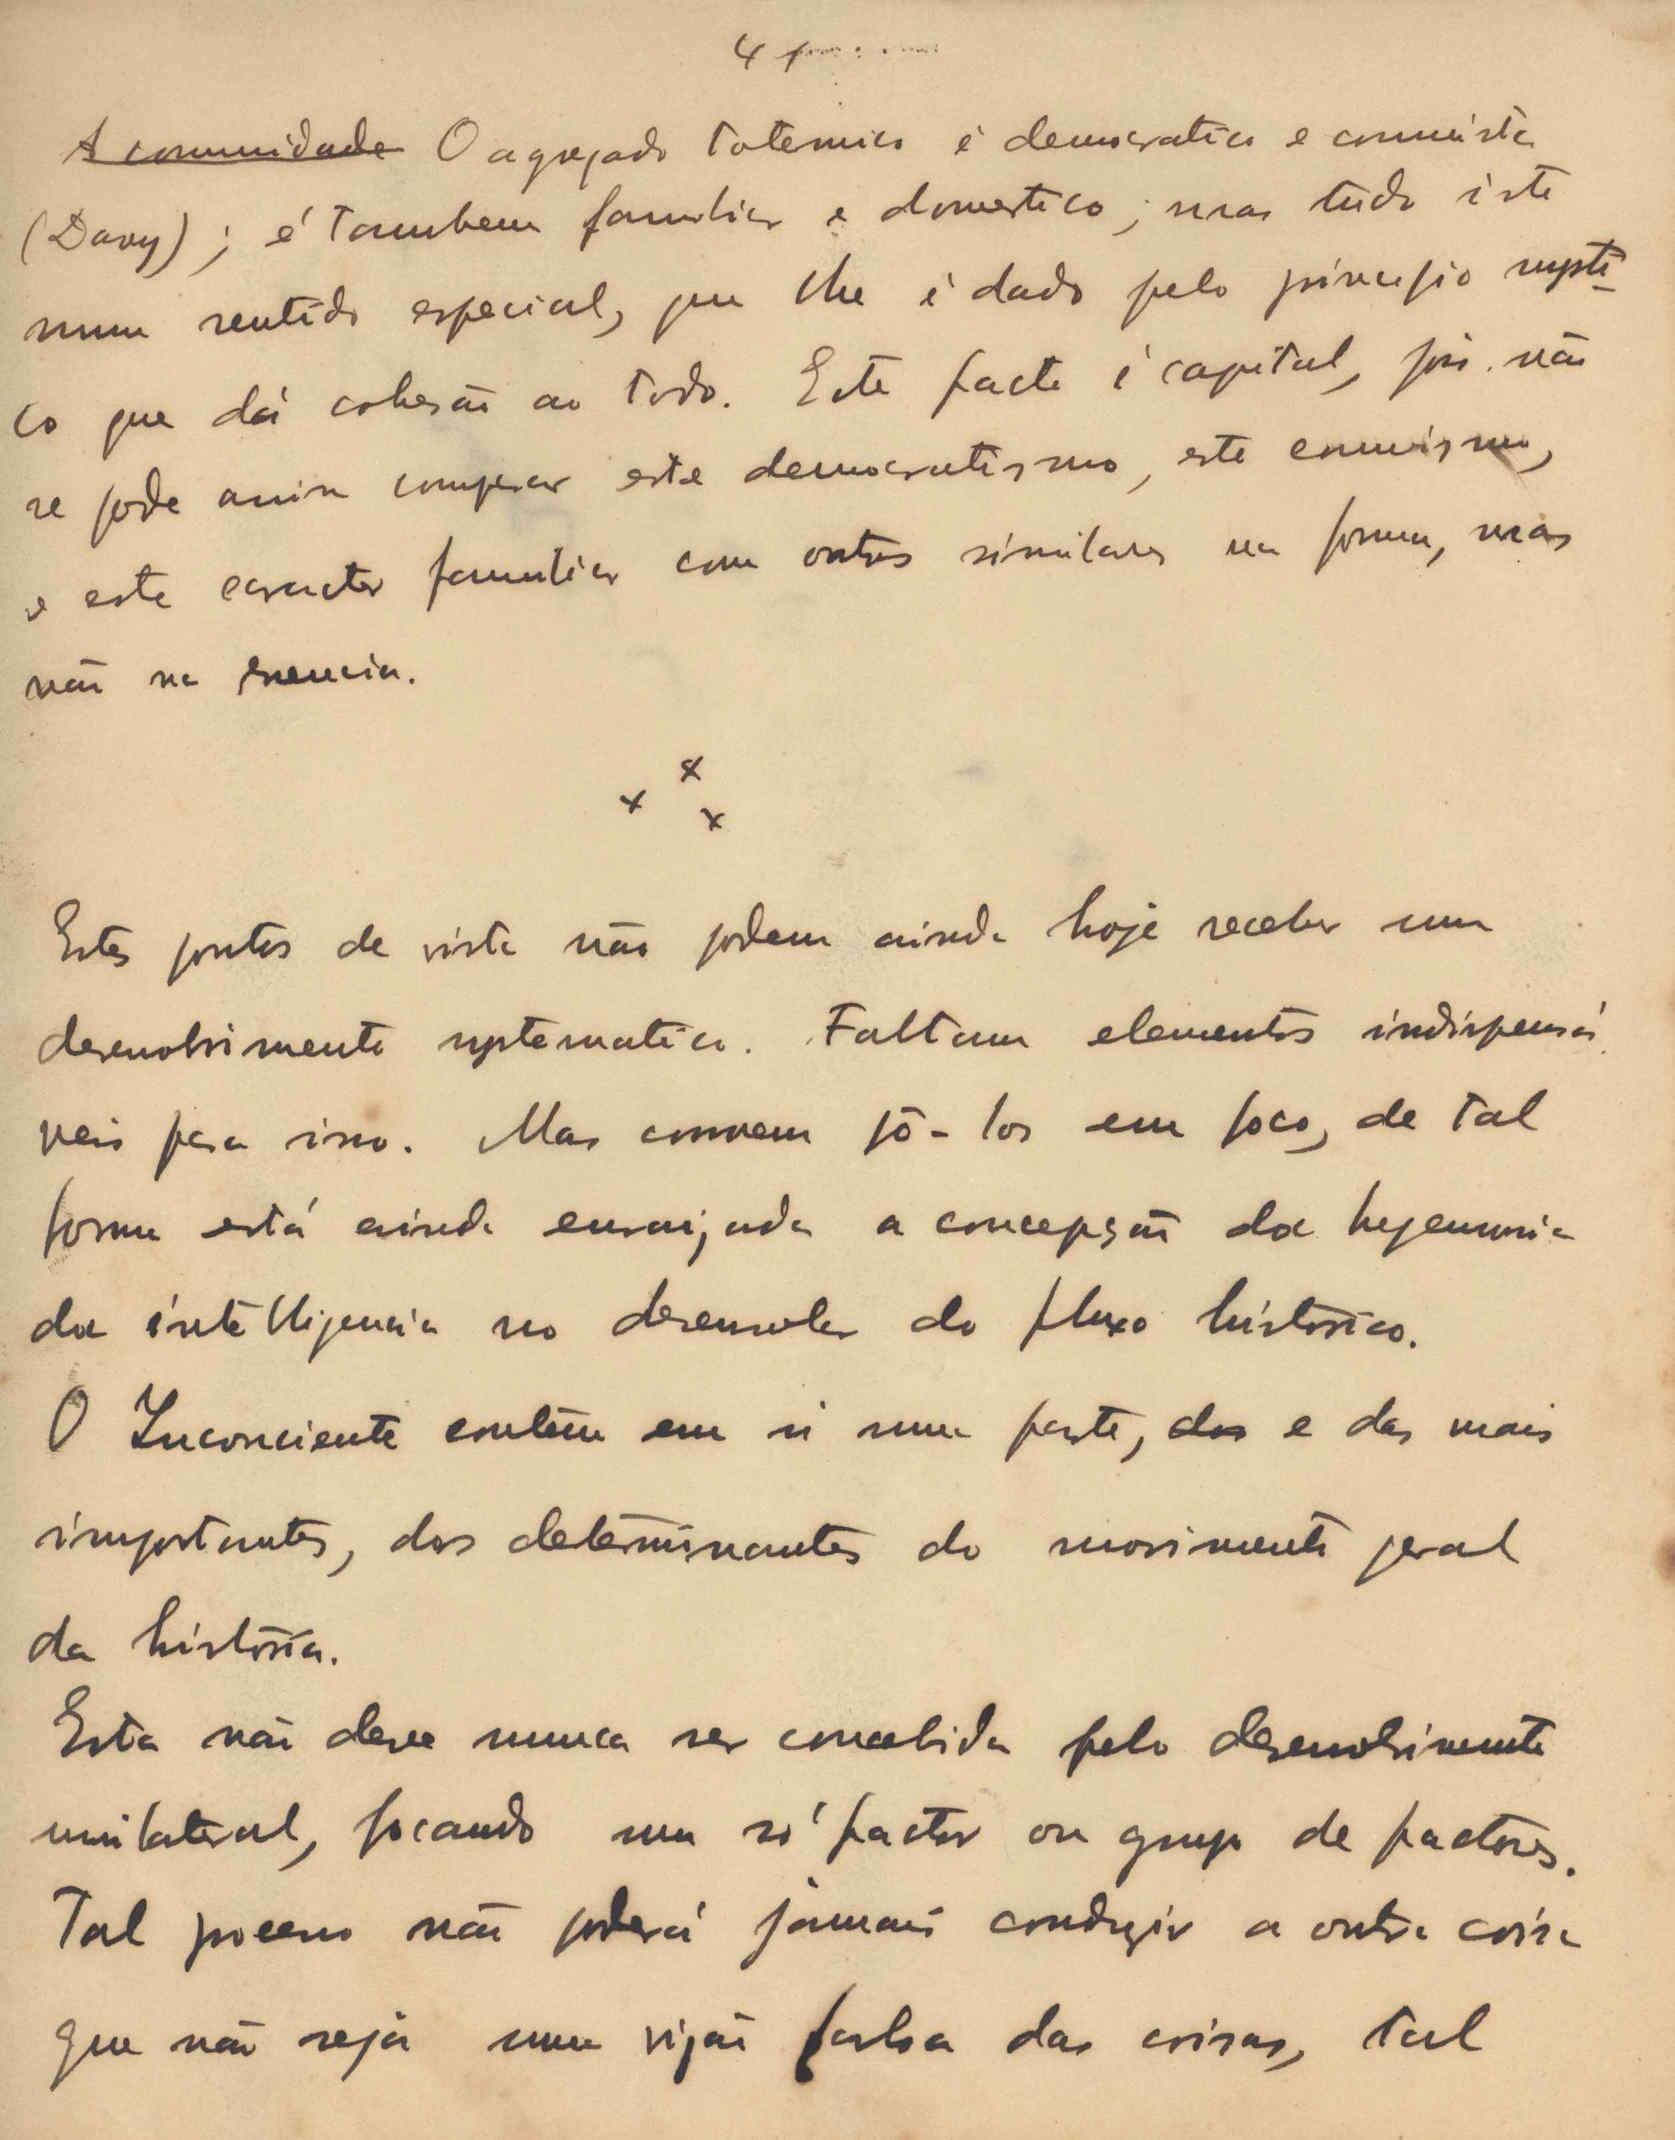 4
A comunidade O agregado totemico é democratico e comunista
(Davy); é tambem familiar e domestico; mas tudo isto
num sentido especial, que lhe é dado pelo principio mysti-
co que dá cohesão ao todo. Este facto é capital, pois não
se pode assim comparar este democratismo, este comunismo,
e este caracter familiar com outros similares na forma, mas
não na essencia.
x
x x
Estes pontos de vista não podem ainda hoje receber um
desenvolvimento systematico. Faltam elementos indispensá
veis para isso. Mas convem pô-los em foco, de tal
forma está ainda enraizada a concepção da hegemonia
da intelligencia no desenvolver do fluxo histórico.
O Inconciente contêm em si uma parte, das e das mais
importantes, dos determinantes do movimento geral
da história.
Esta não deve nunca ser concebida pelo desenvolvimento
unilateral, focando um só factor ou grupo de factores.
Tal processo não poderá jamais conduzir a outra coisa
que não seja uma visão falsa das coisas, tal